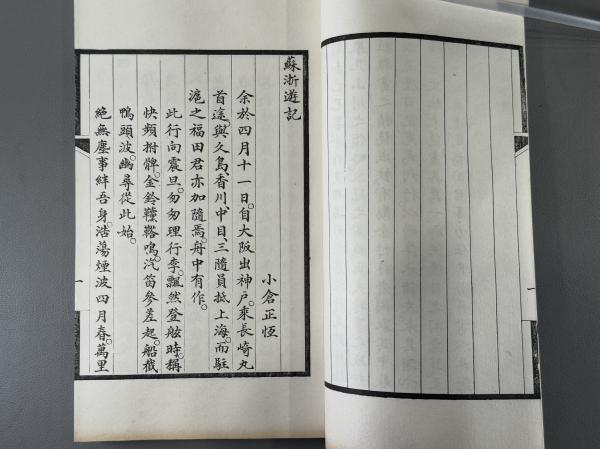 蘇浙遊記
小倉正恆
余於四月十一日。自大阪出神戶。乘長崎丸
首途。與久島、香川、中目、三隨員抵上海。而駐
滬之福田君亦加隨焉。舟中有作。
此行向震旦。匆匆理行李。飄然登舷時。稱
快頻拊髀。金鈴鞺鞳鳴。汽笛參差起。船截
鴨頭波。幽尋從此始。
絕無塵事絆吾身。浩蕩煙波四月春。萬里
一
一